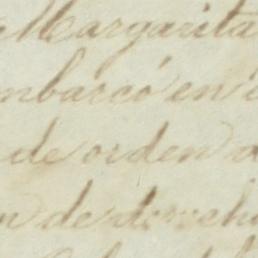 Margarita
mbarcó en
de orden
de derech